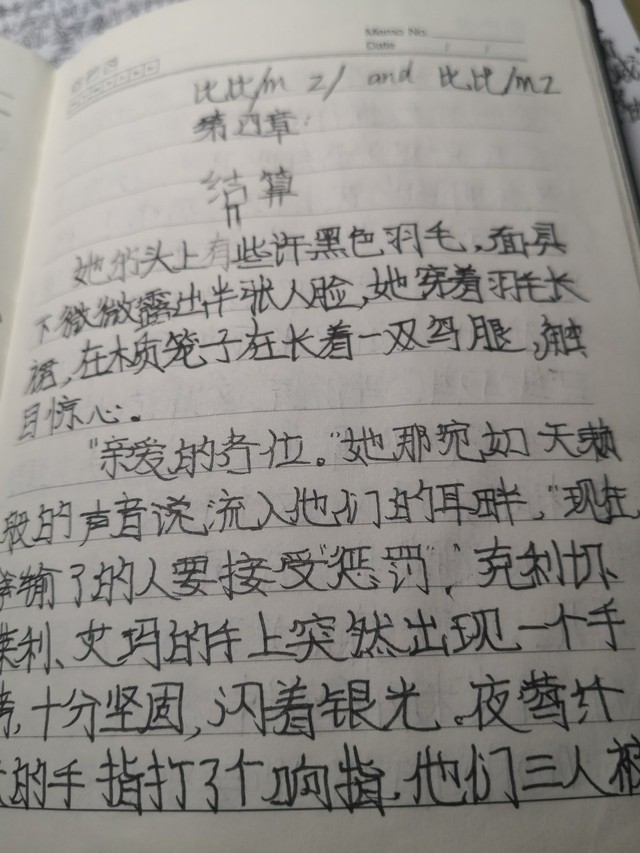 Memo No.
Date / /
比比/m 2/ and 比比/m2
第四章:
结算
她的头上有些许黑色羽毛,面具
下微微露出半张人脸,她穿着羽毛长
裙,在木质笼子在长着一双鸟腿,触
目惊心。
"亲爱的各位。"她那宛如天籁
般的声音说,流入他们的耳畔,"现在,
输了的人要接受"惩罚"。"克利切
莱利、艾玛的手上突然出现一个手
,十分坚固,闪着银光。夜莺纤
的手指打了个响指,他们三人被